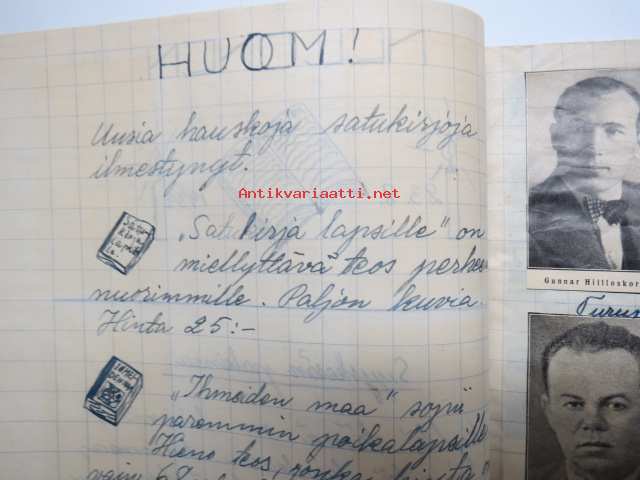 HUOM!
Uusia hauskoja satukirjoja
ilmestynyt.
Antikvariaatti.net
„Satukirja lapsille" on
miellyttävä teos perheen
nuorimmille. Paljon kuvia.
Hinta 25:-
„Ihmeiden maa" sopii
paremmin poikalapsille
Hieno teos, jonka hinta
Gunnar Hillloskor
Turus